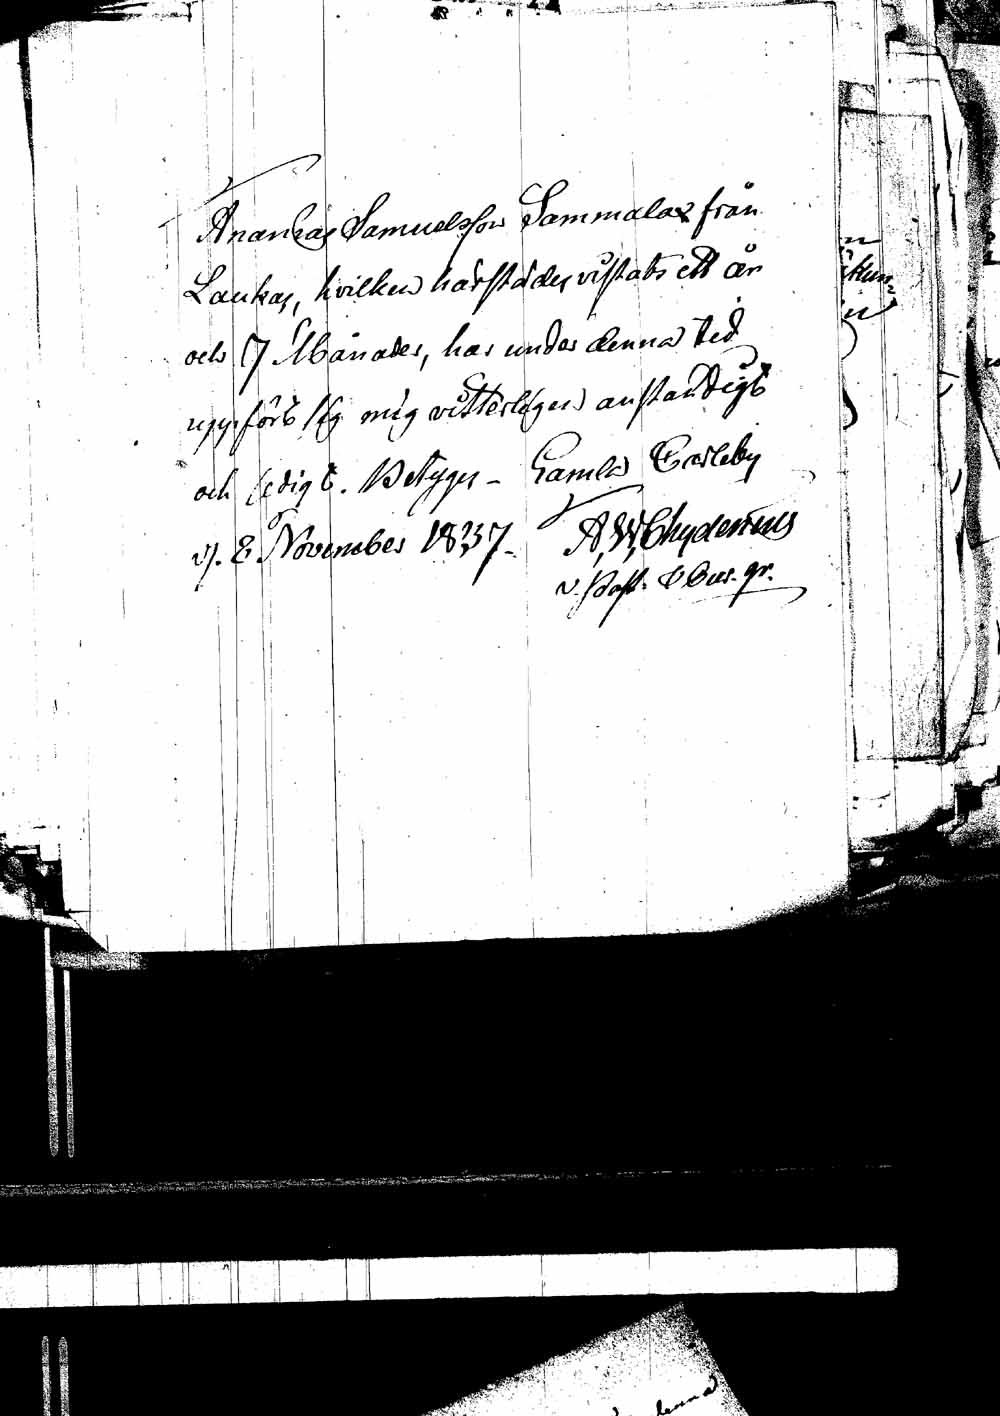 Ananias Samuelsson Sammalax från
Laukas, hvilken härstädes vistats ett år
och 7 Månader, har under denna tid
uppfört sig mig vitterligen anständigt
och sedigt. Betygar - Gamla Carleby
d. 8 November 1837.
A, W, Chydenius
v. Past.
denna